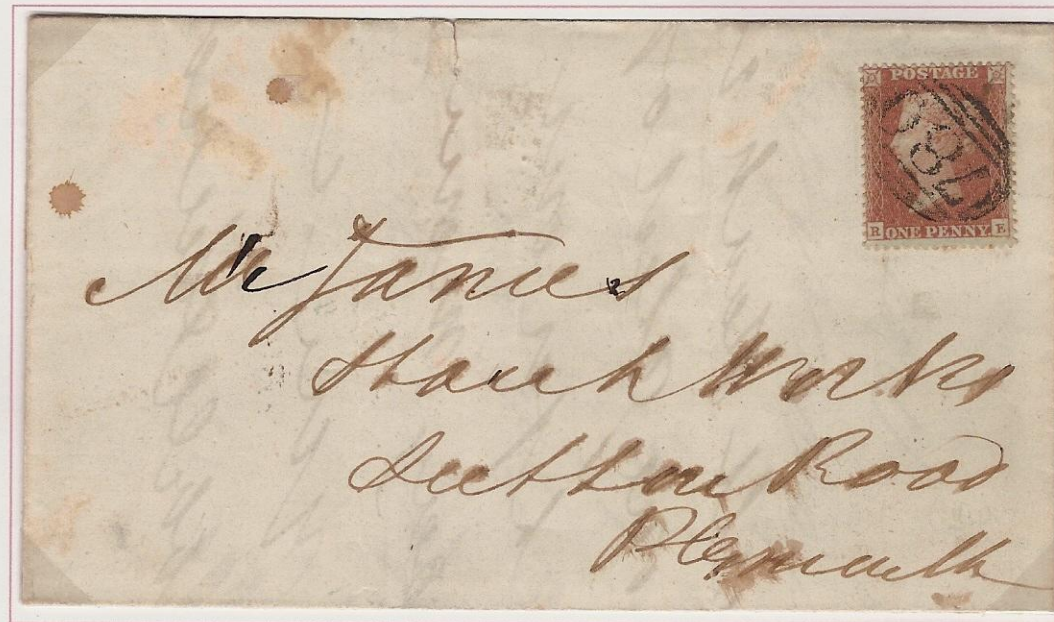 POSTAGE
787
ONE PENNY
R E
Mr James
Starch Works
Sutton Road
Plymouth